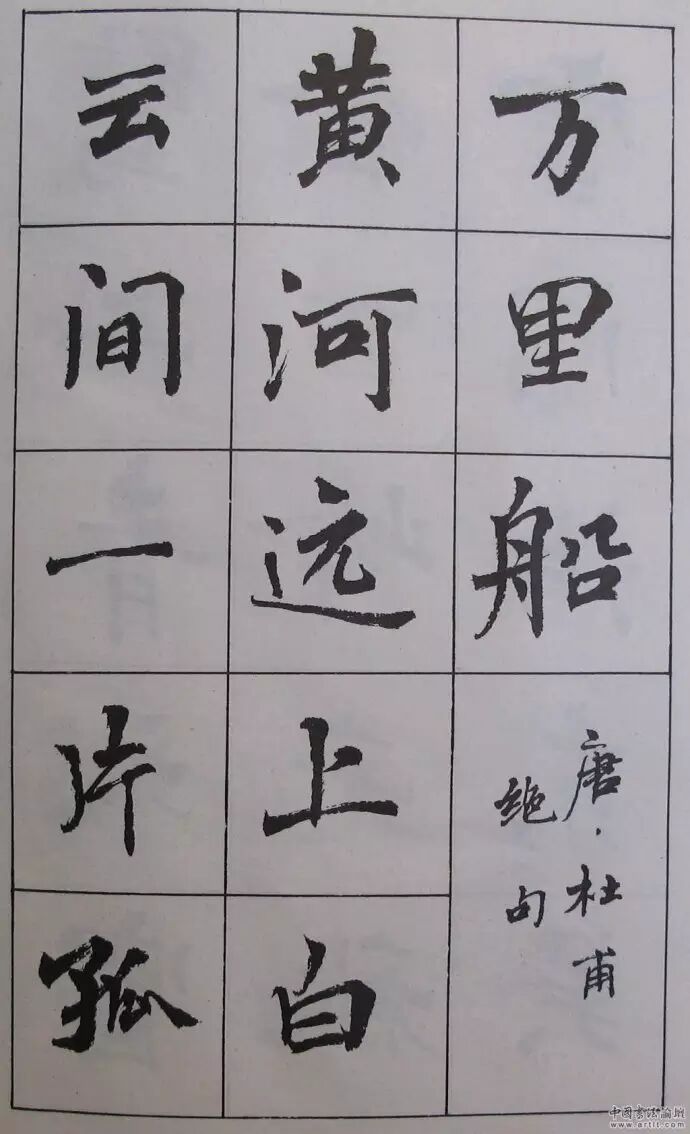 万里船
唐·杜甫
绝句
黄河远上白
云间一片孤
中国书法论坛
www.artit.com